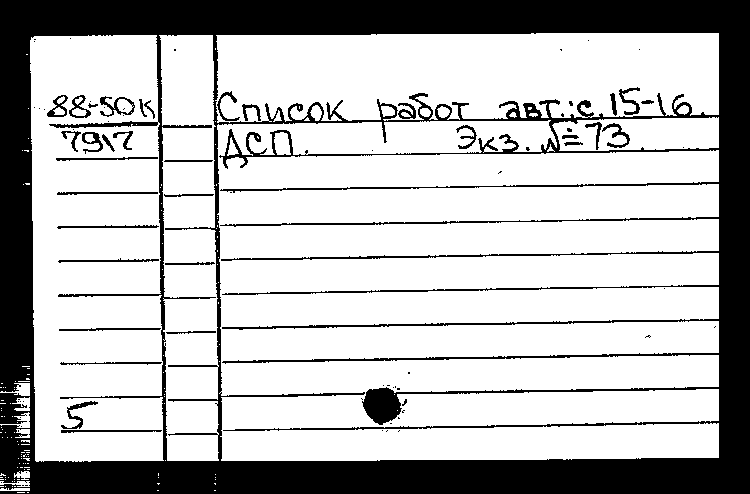 88-50К Список работ авт.: с. 15-16.
7917 ДСП. Экз. № 73.
5